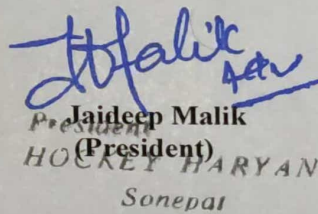 JMalik
Adv
Jaideep Malik
President
(President)
HOCKEY HARYAN
Sonepat